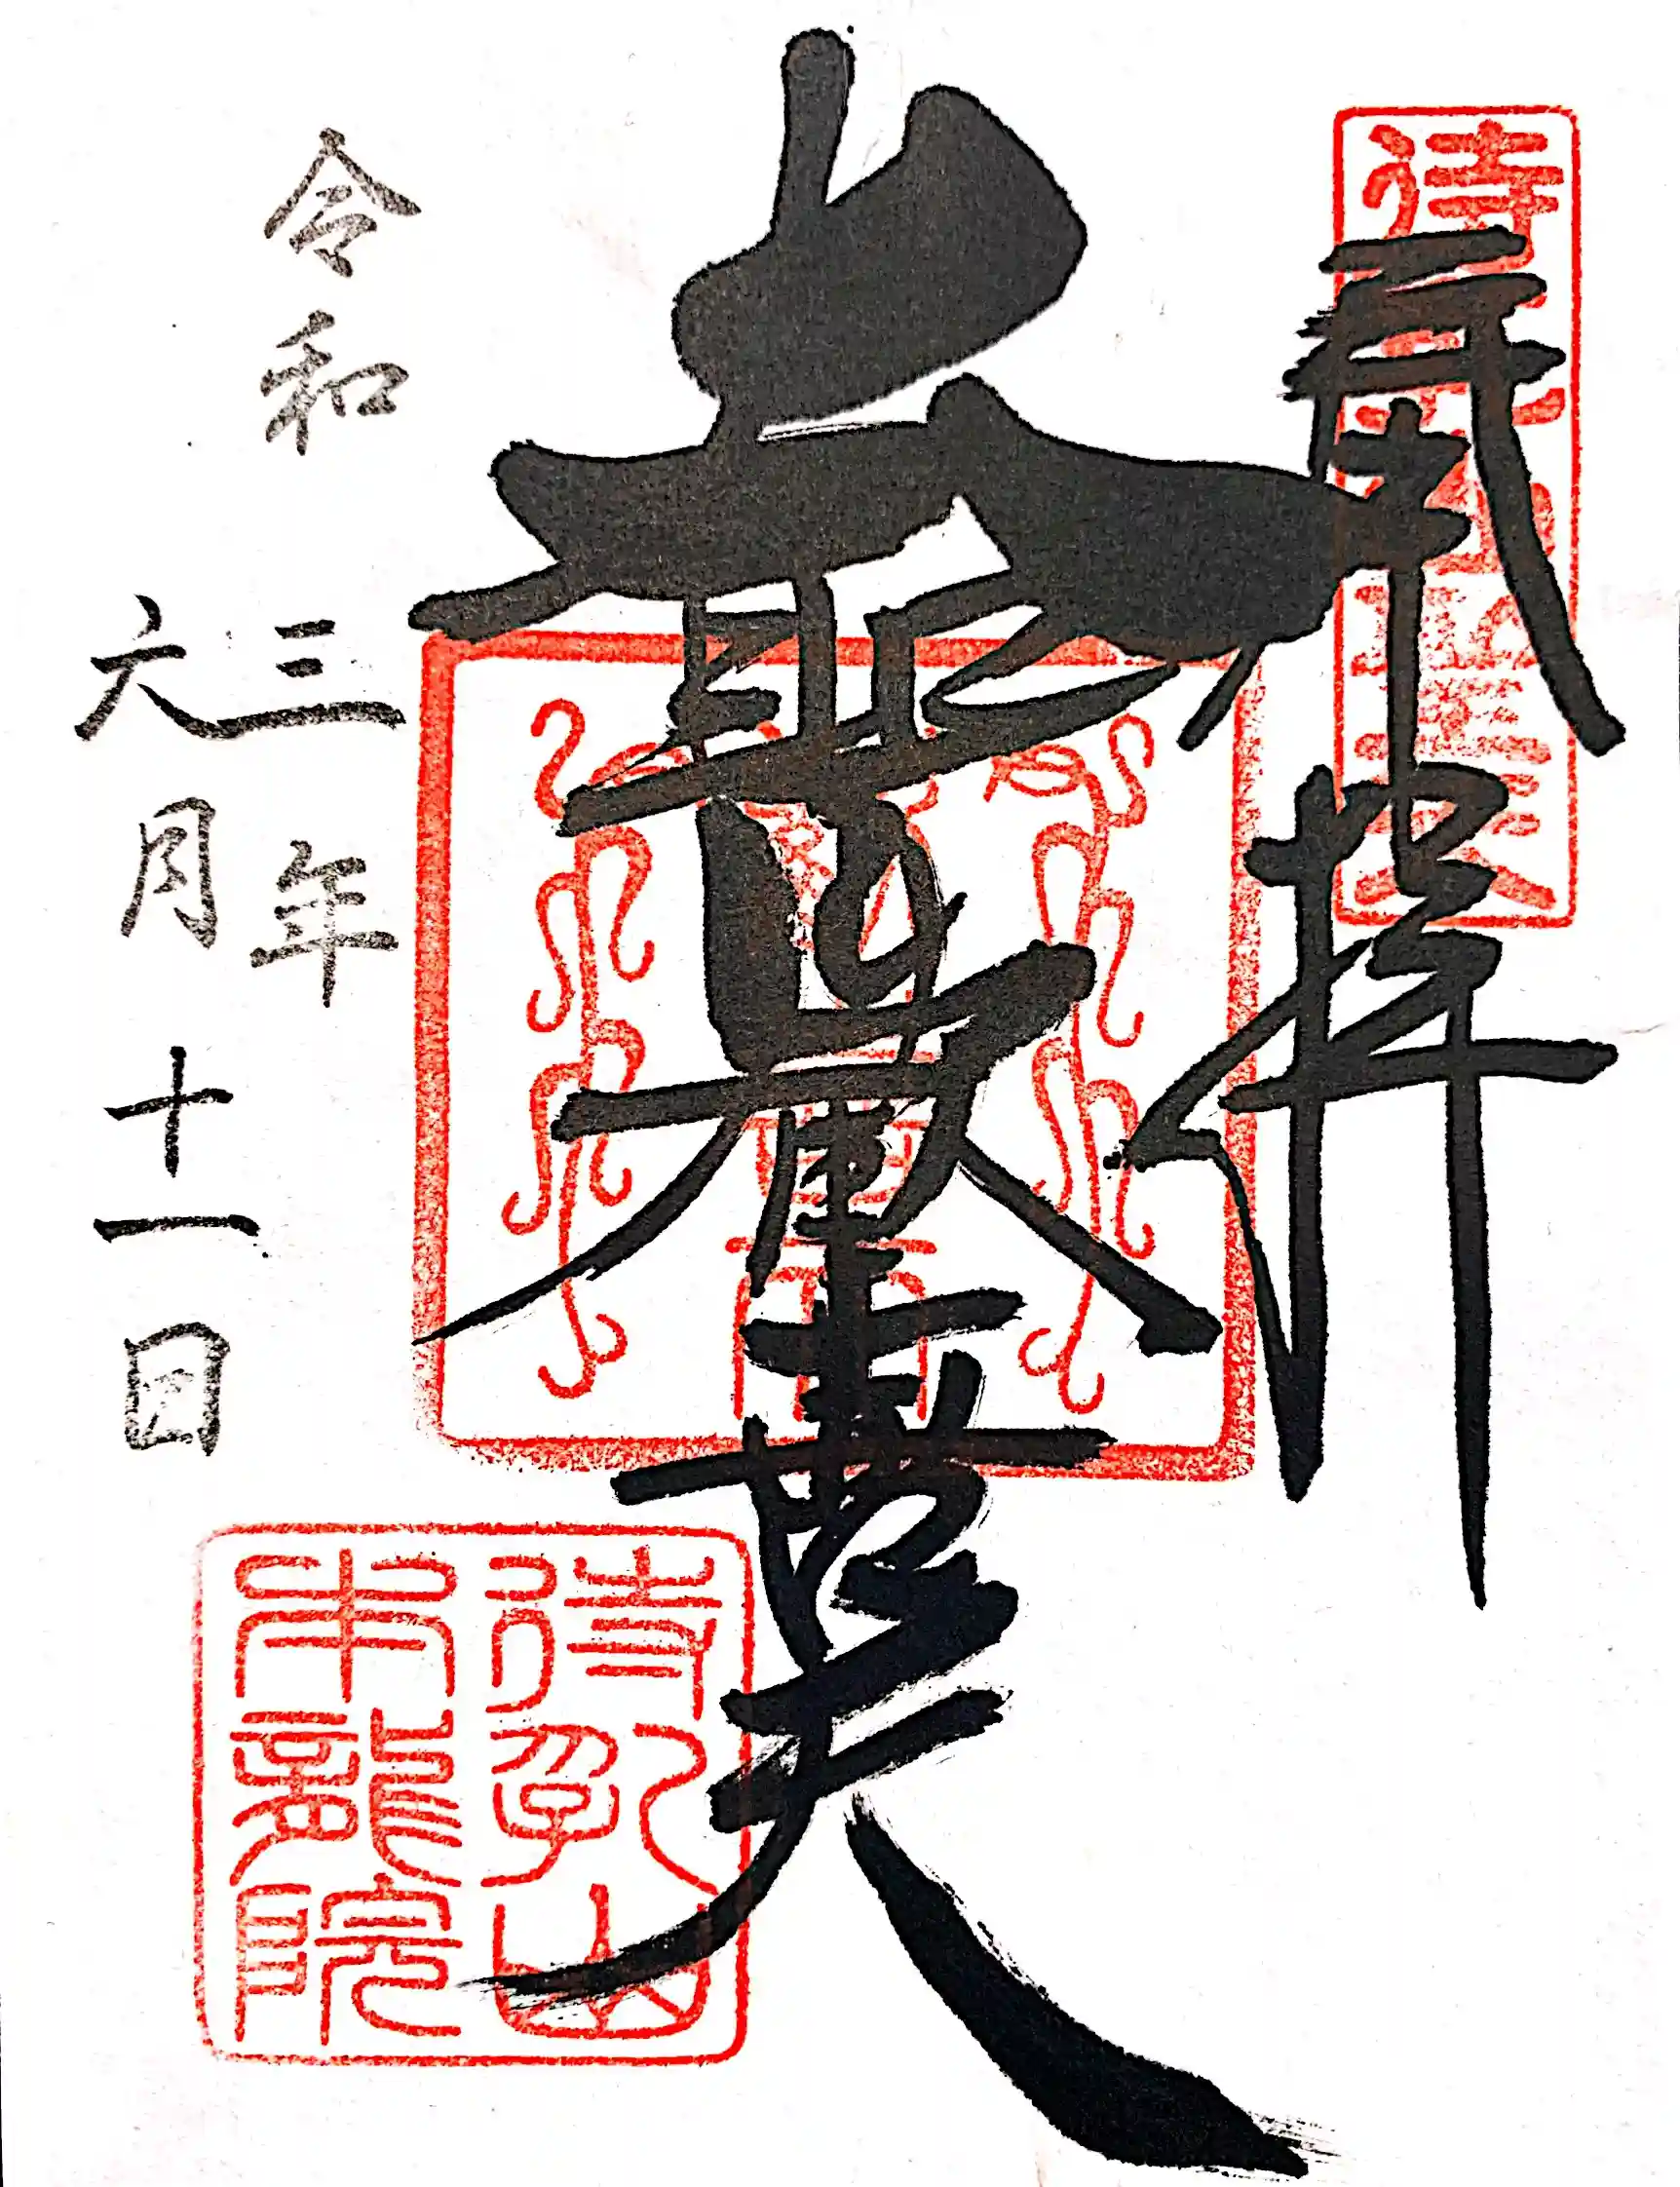 奉拝
待乳山聖天
大聖歡喜天
令和三年
六月十一日
待乳山
本龍院